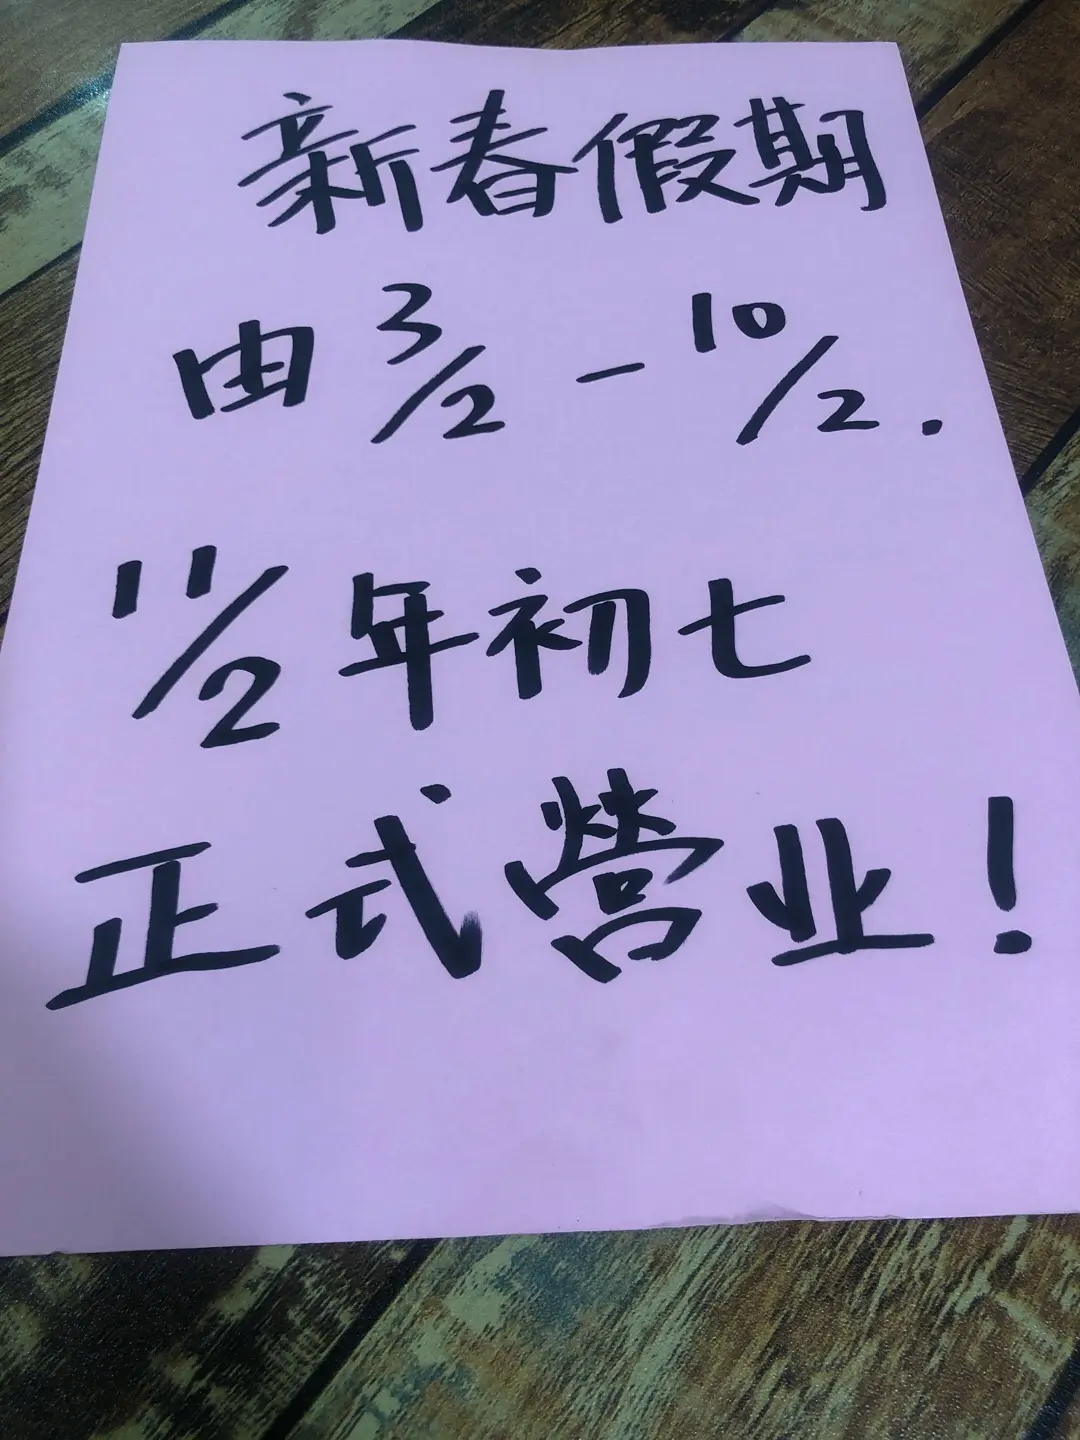 新春假期
由3/2-10/2.
11/2年初七
正式營业!